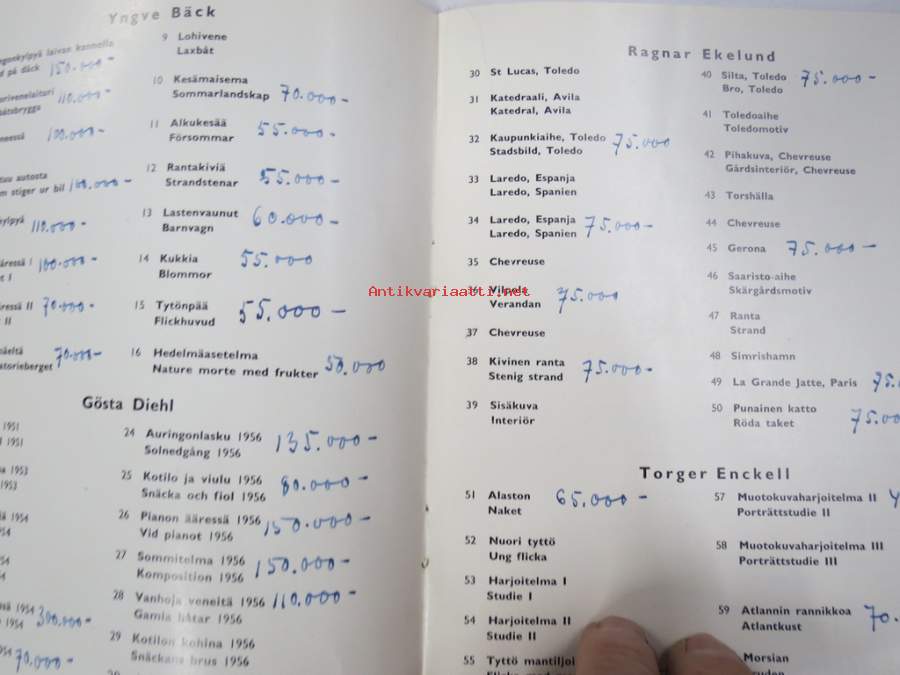 Yngve Bäck
laivan kannella
på däck 150.000 -
110.000 -
100.000 -
autosta
stiger ur bil 100.000 -
110.000 -
I 100.000 -
I
II 70.000 -
II
70.000 -
9 Lohivene
Laxbåt
10 Kesämaisema
Sommarlandskap 70.000 -
11 Alkukesää
Försommar 55.000 -
12 Rantakiviä
Strandstenar 55.000 -
13 Lastenvaunut
Barnvagn 60.000 -
14 Kukkia
Blommor 55.000
15 Tytönpää
Flickhuvud 55.000 -
16 Hedelmäasetelma
Nature morte med frukter 50.000
Gösta Diehl
1951
1951
1953
1953
1954
1954 300.000 -
70.000 -
24 Auringonlasku 1956
Solnedgång 1956 135.000 -
25 Kotilo ja viulu 1956
Snäcka och fiol 1956 80.000 -
26 Pianon ääressä 1956
Vid pianot 1956 150.000 -
27 Sommitelma 1956
Komposition 1956 150.000 -
28 Vanhoja veneitä 1956 110.000 -
Gamla båtar 1956
29 Kotilon kohina 1956
Snäckans brus 1956
Ragnar Ekelund
30 St Lucas, Toledo
31 Katedraali, Avila
Katedral, Avila
32 Kaupunkiaihe, Toledo 75.000
Stadsbild, Toledo
33 Laredo, Espanja
Laredo, Spanien
34 Laredo, Espanja 75.000 -
Laredo, Spanien
35 Chevreuse
36 Vilpola 75.000
Verandan
37 Chevreuse
38 Kivinen ranta 75.000 -
Stenig strand
39 Sisäkuva
Interiör
40 Silta, Toledo 75.000 -
Bro, Toledo
41 Toledoaihe
Toledomotiv
42 Pihakuva, Chevreuse
Gårdsinteriör, Chevreuse
43 Torshälla
44 Chevreuse
45 Gerona 75.000 -
46 Saaristo-aihe
Skärgårdsmotiv
47 Ranta
Strand
48 Simrishamn
49 La Grande Jatte, Paris
50 Punainen katto
Röda taket 75.00
Antikvariaatti.net
Torger Enckell
51 Alaston 65.000 -
Naket
52 Nuori tyttö
Ung flicka
53 Harjoitelma I
Studie I
54 Harjoitelma II
Studie II
55 Tyttö mantiljoi
57 Muotokuvaharjoitelma II
Porträttstudie II
58 Muotokuvaharjoitelma III
Porträttstudie III
59 Atlannin rannikkoa 70.
Atlantkust
Morsian